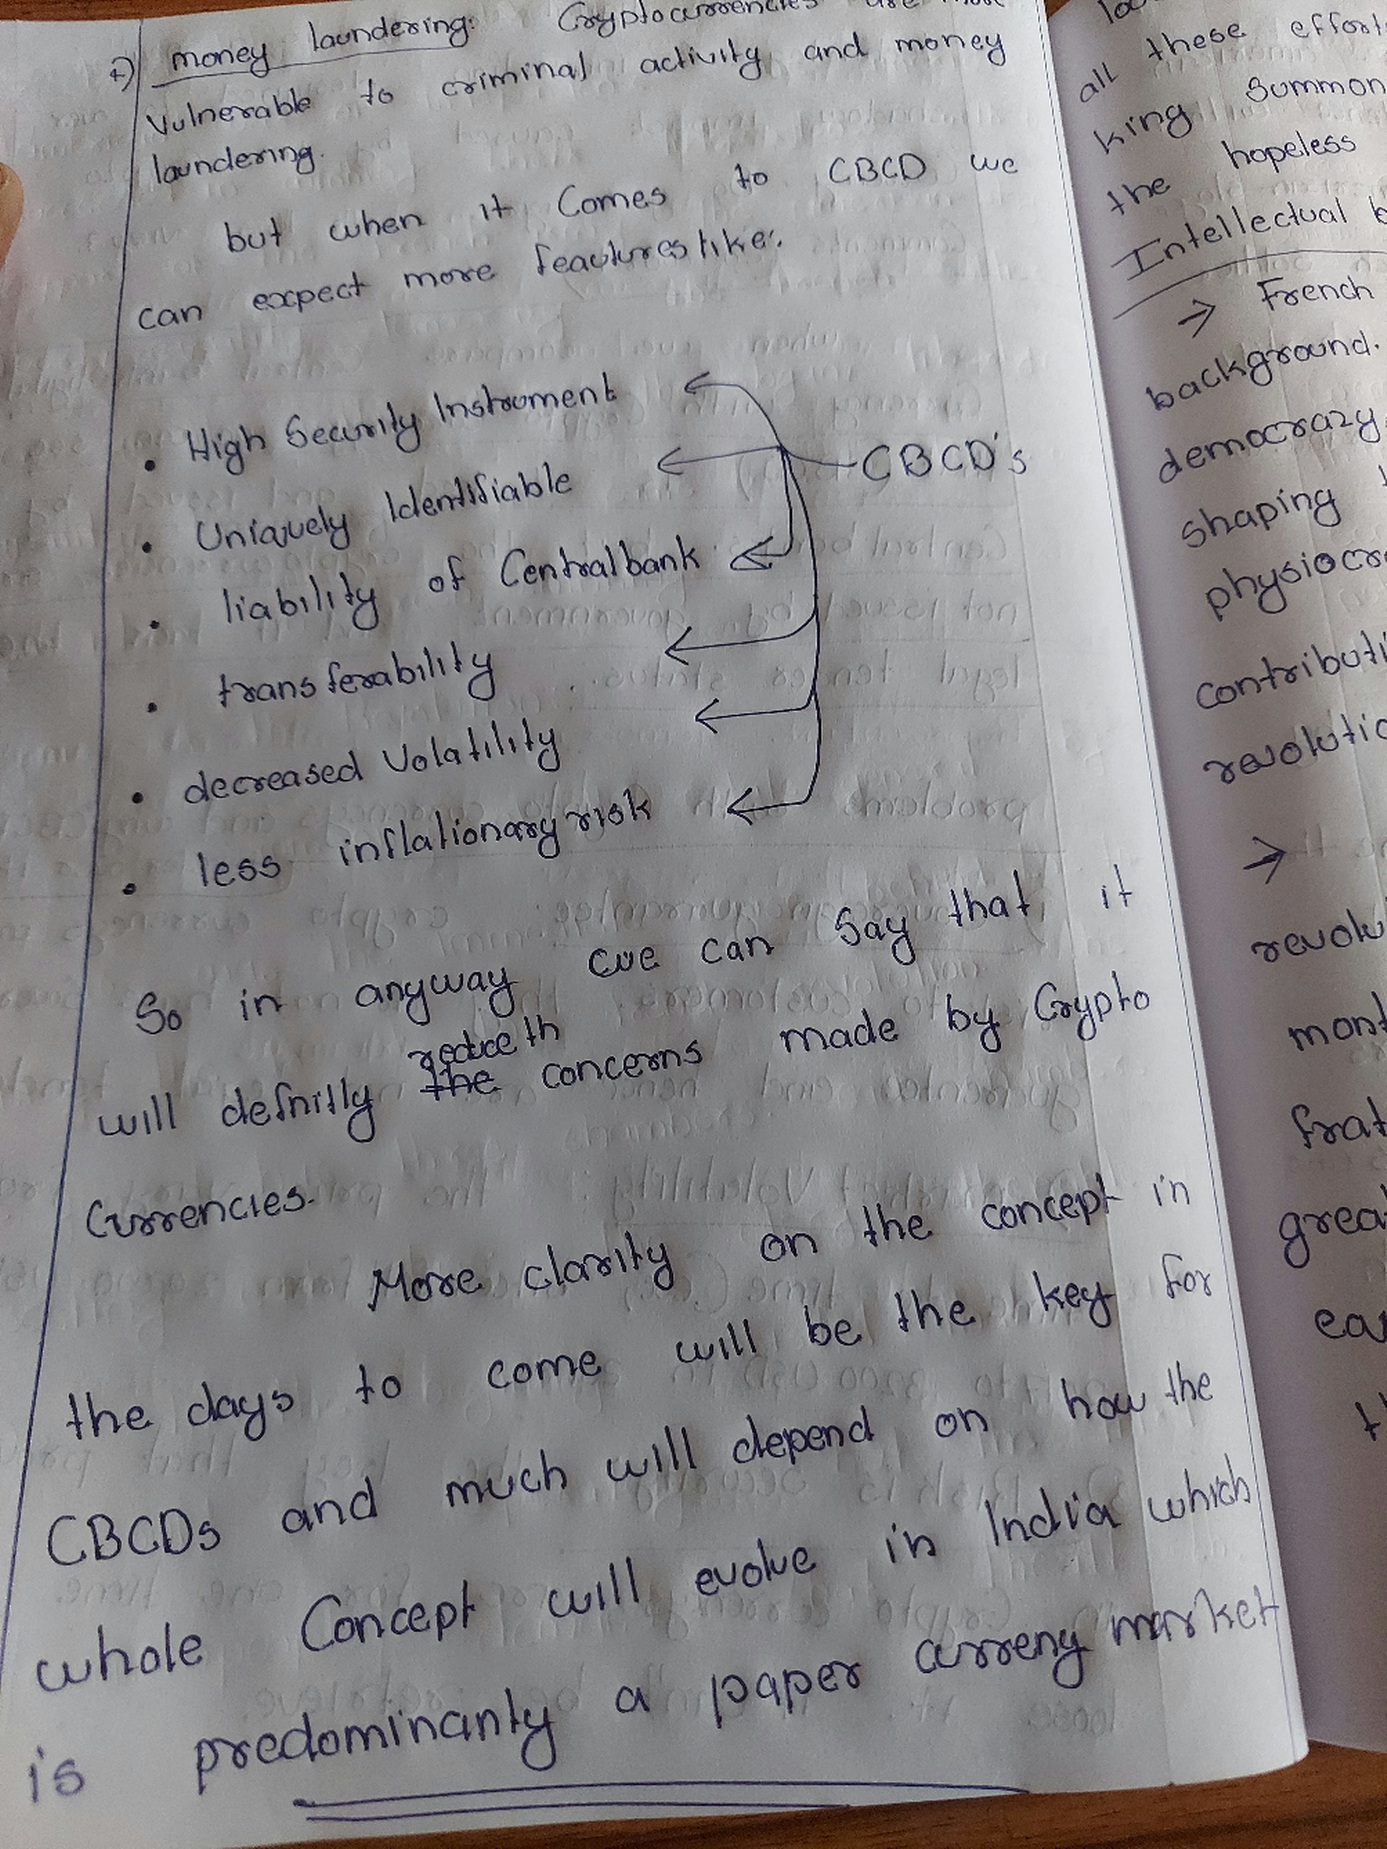 money laundering: Cryptocurrencies are more
vulnerable to criminal activity and money
laundering.
but when it Comes to CBCD we
can expect more feautures like:
• High Security Instrument
• Uniquely Identifiable
CBCD's
• liability of Centralbank
• transferability
• decreased Volatility
• less inflationary risk
So in anyway we can Say that it
reduce th
will defnitly the concerns made by Crypto
Currencies.
More clarity on the concept in
the days to come will be the key for
CBCDs and much will depend on how the
whole Concept will evolve in India which
is predominanly a paper curreny market
all these efforts
king Summon
the hopeless
Intellectual b
→ French
background.
democrazy,
shaping
physiocr
contributi
revolutio
→
revolu
mont
frat
grea
ea